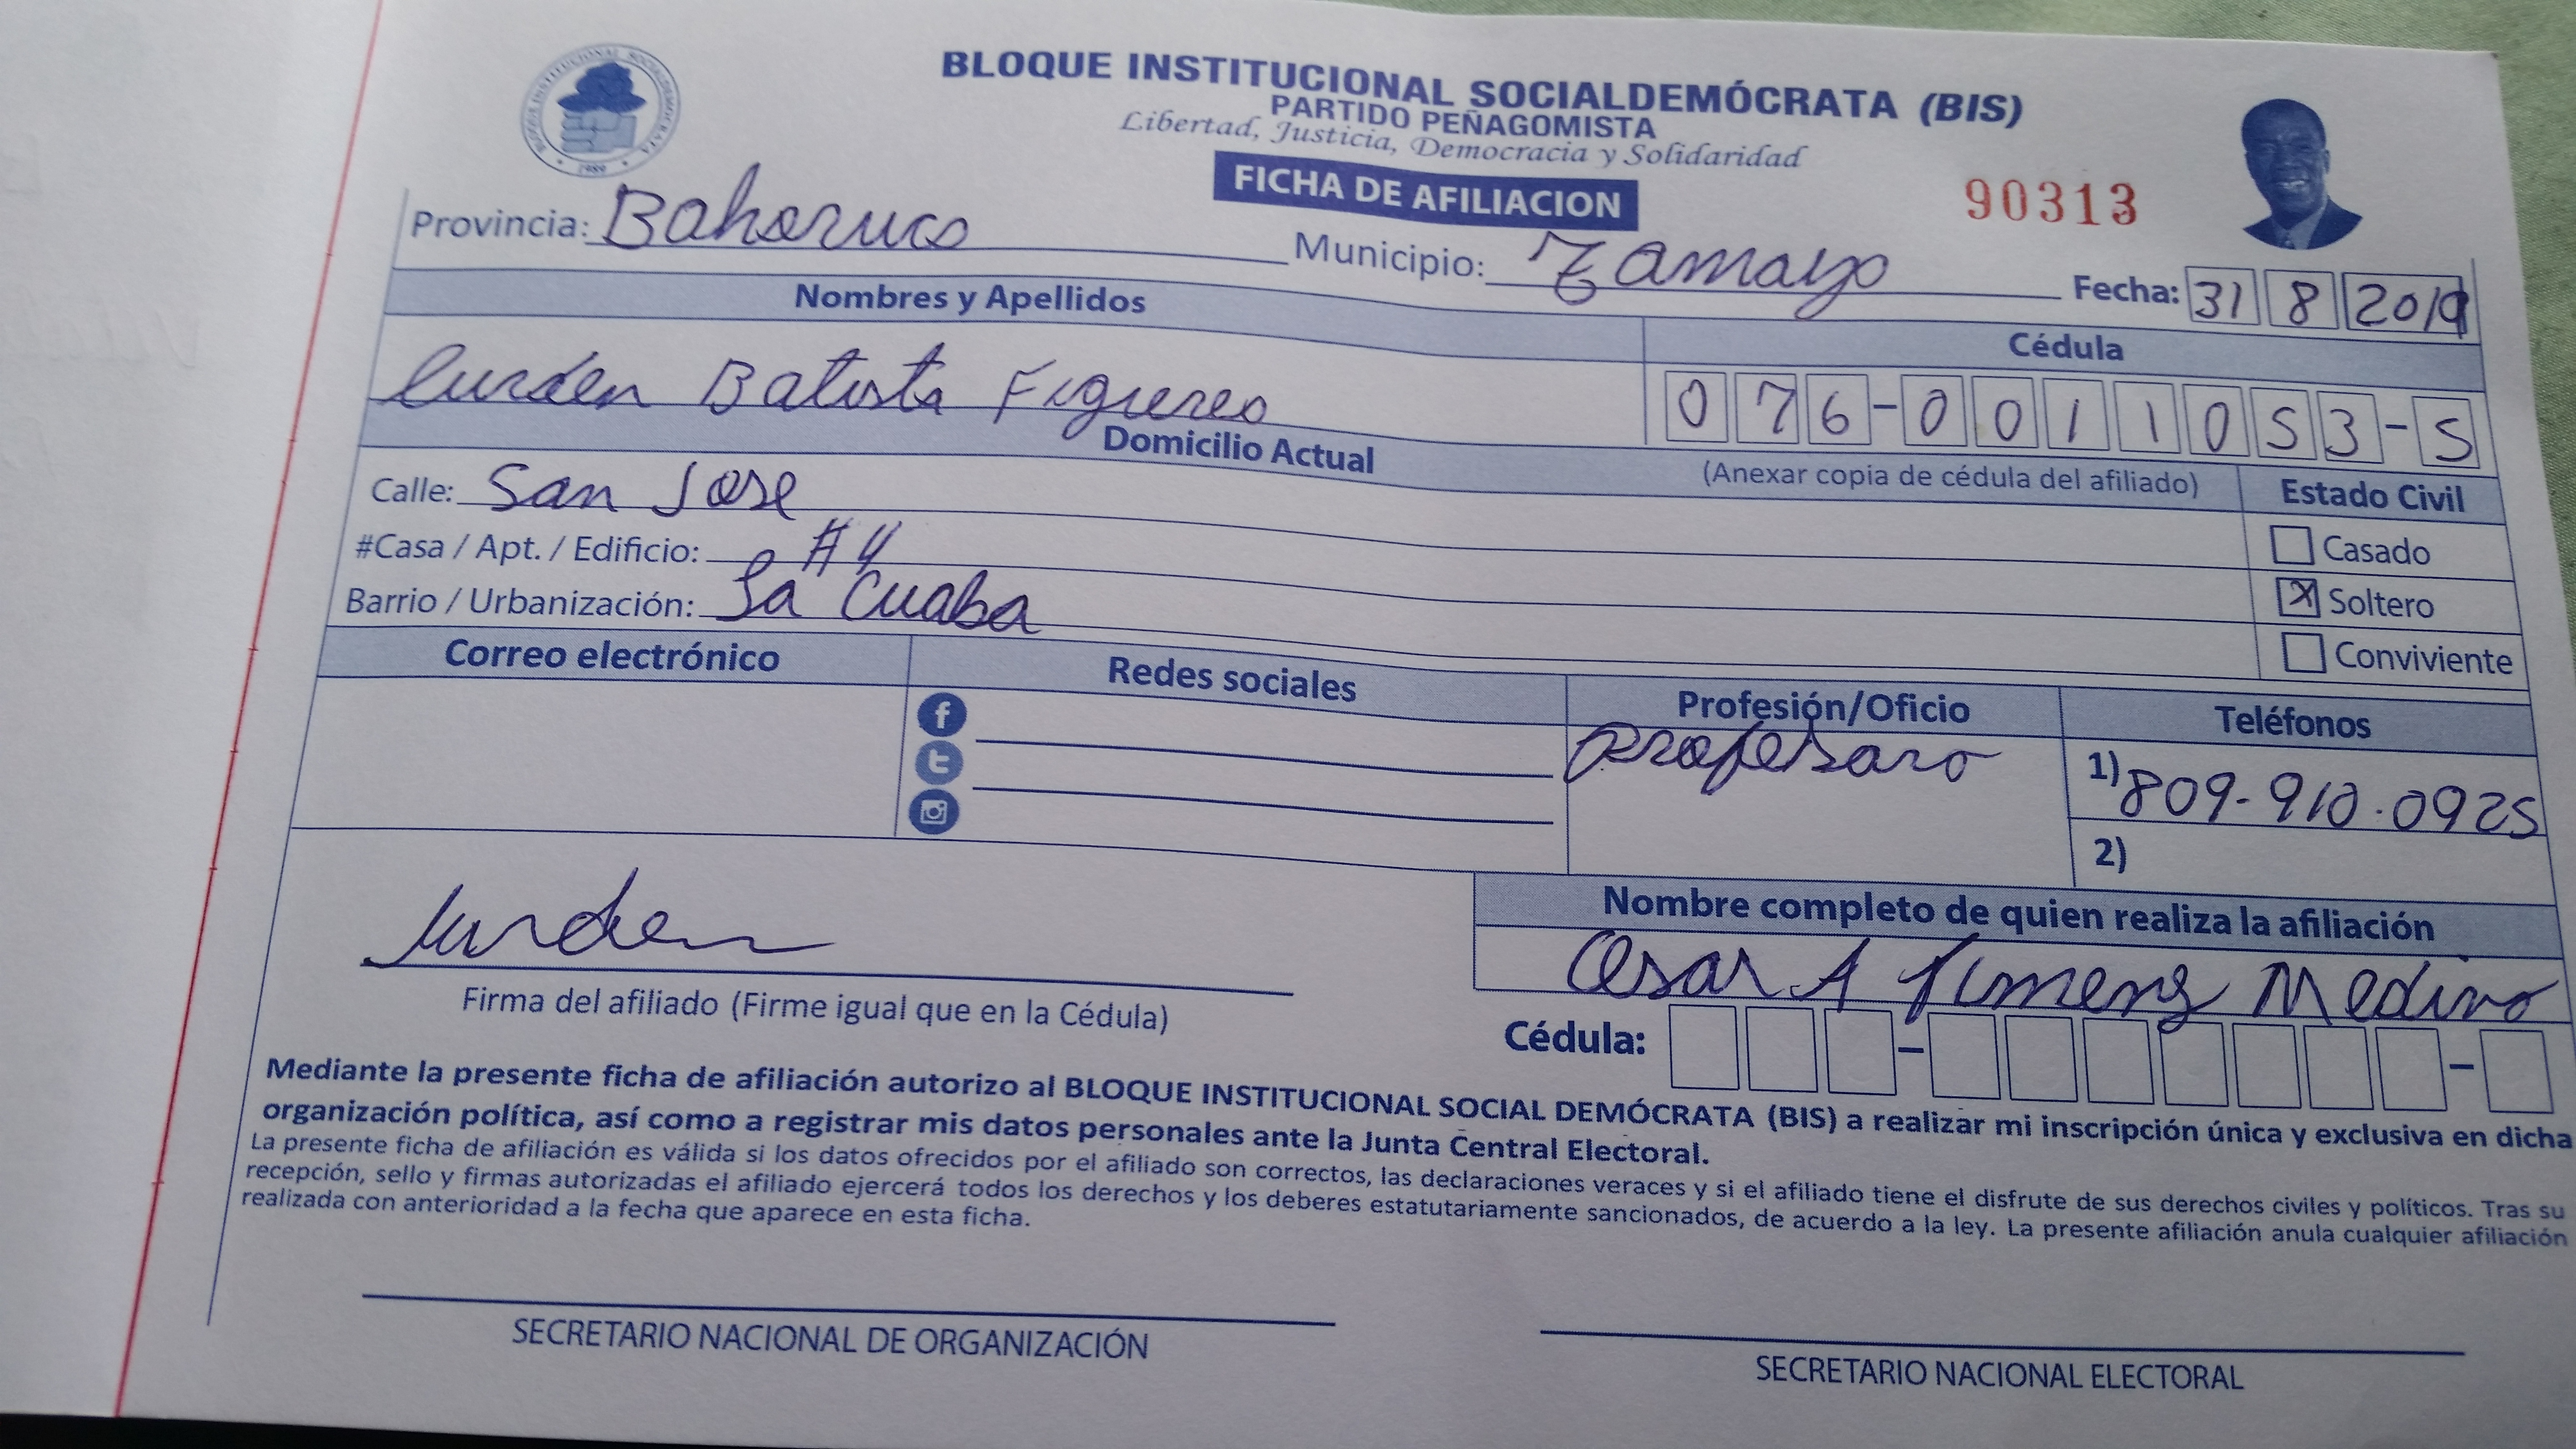 BLOQUE INSTITUCIONAL SOCIALDEMÓCRATA (BIS)
PARTIDO PEÑAGOMISTA
Libertad, Justicia, Democracia y Solidaridad
FICHA DE AFILIACION
90313
BLOQUE INSTITUCIONAL SOCIALDEMOCRATA
1989
Provincia: Bahoruco Municipio: Tamayo Fecha: 31 8 2019
Nombres y Apellidos Cédula
Lurden Batista Figuereo 076-0011053-5
Domicilio Actual (Anexar copia de cédula del afiliado) Estado Civil
Calle: San Jose
Casado
#Casa / Apt. / Edificio: #4
X Soltero
Barrio / Urbanización: La Cuaba
Conviviente
Correo electrónico Redes sociales Profesión/Oficio Teléfonos
Profesara 1) 809-910-0925
2)
Nombre completo de quien realiza la afiliación
Cesar A Jimenez Medina
Lurden
Firma del afiliado (Firme igual que en la Cédula)
Cédula:
Mediante la presente ficha de afiliación autorizo al BLOQUE INSTITUCIONAL SOCIAL DEMÓCRATA (BIS) a realizar mi inscripción única y exclusiva en dicha
organización política, así como a registrar mis datos personales ante la Junta Central Electoral.
La presente ficha de afiliación es válida si los datos ofrecidos por el afiliado son correctos, las declaraciones veraces y si el afiliado tiene el disfrute de sus derechos civiles y políticos. Tras su
recepción, sello y firmas autorizadas el afiliado ejercerá todos los derechos y los deberes estatutariamente sancionados, de acuerdo a la ley. La presente afiliación anula cualquier afiliación
realizada con anterioridad a la fecha que aparece en esta ficha.
SECRETARIO NACIONAL DE ORGANIZACIÓN
SECRETARIO NACIONAL ELECTORAL